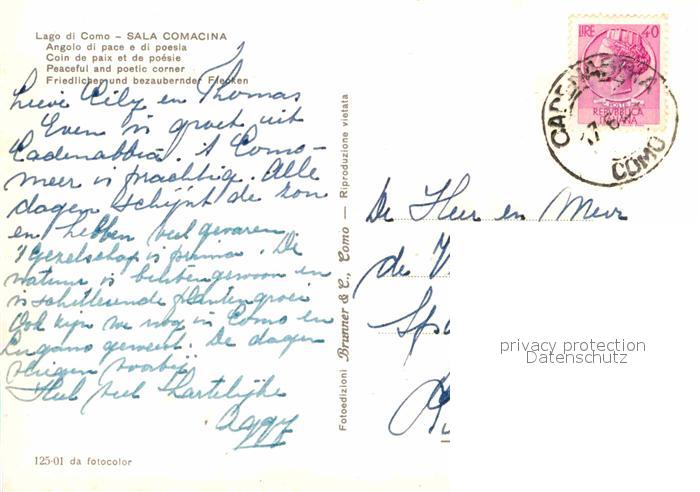 Lago di Como – SALA COMACINA
Angolo di pace e di poesia
Coin de paix et de poésie
Peaceful and poetic corner
Friedlicher und bezaubernder Flecken
Lieve Cily en Thomas
Even 'n groet uit
Cadenabbia. 't Como-
meer is prachtig. Alle
dagen schijnt de zon
en hebben veel gevaren.
't Gezelschap is prima. De
natuur is buitengewoon en
'n schitterende plantengroei
Ook zijn we nog in Como en
Lugano geweest. De dagen
vliegen voorbij
Heel veel hartelijks
125-01 da fotocolor
Fotoedizioni Brunner & C., Como — Riproduzione vietata
LIRE 40
REPVBBLICA
ITALIANA
CADENABBIA
COMO
De Heer en Mevr
de V
Spo
privacy protection
Datenschutz